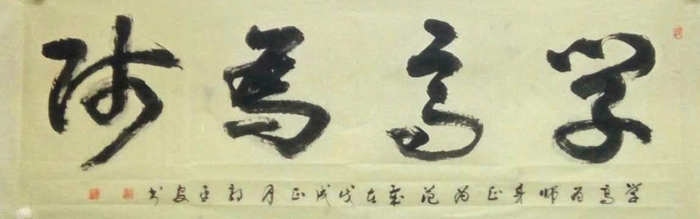 学高为师
学高为师身正为范岁在戊戌正月